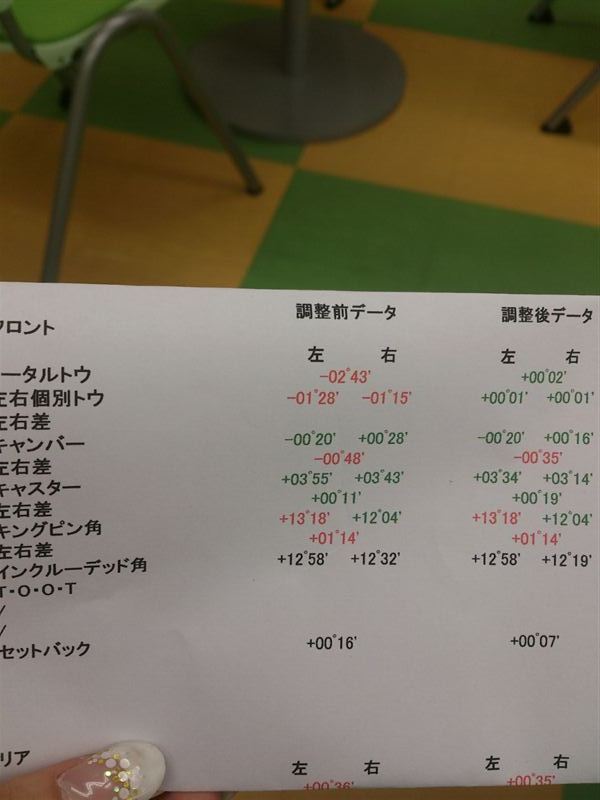 フロント 調整前データ 調整後データ
左 右 左 右
ータルトウ −02°43' +00°02'
左右個別トウ −01°28' −01°15' +00°01' +00°01'
左右差
キャンバー −00°20' +00°28' −00°20' +00°16'
左右差 −00°48' −00°35'
キャスター +03°55' +03°43' +03°34' +03°14'
左右差 +00°11' +00°19'
キングピン角 +13°18' +12°04' +13°18' +12°04'
左右差 +01°14' +01°14'
インクルーデッド角 +12°58' +12°32' +12°58' +12°19'
T・O・O・T
/
/
セットバック +00°16' +00°07'
リア 左 右 左 右
+00°36' +00°35'